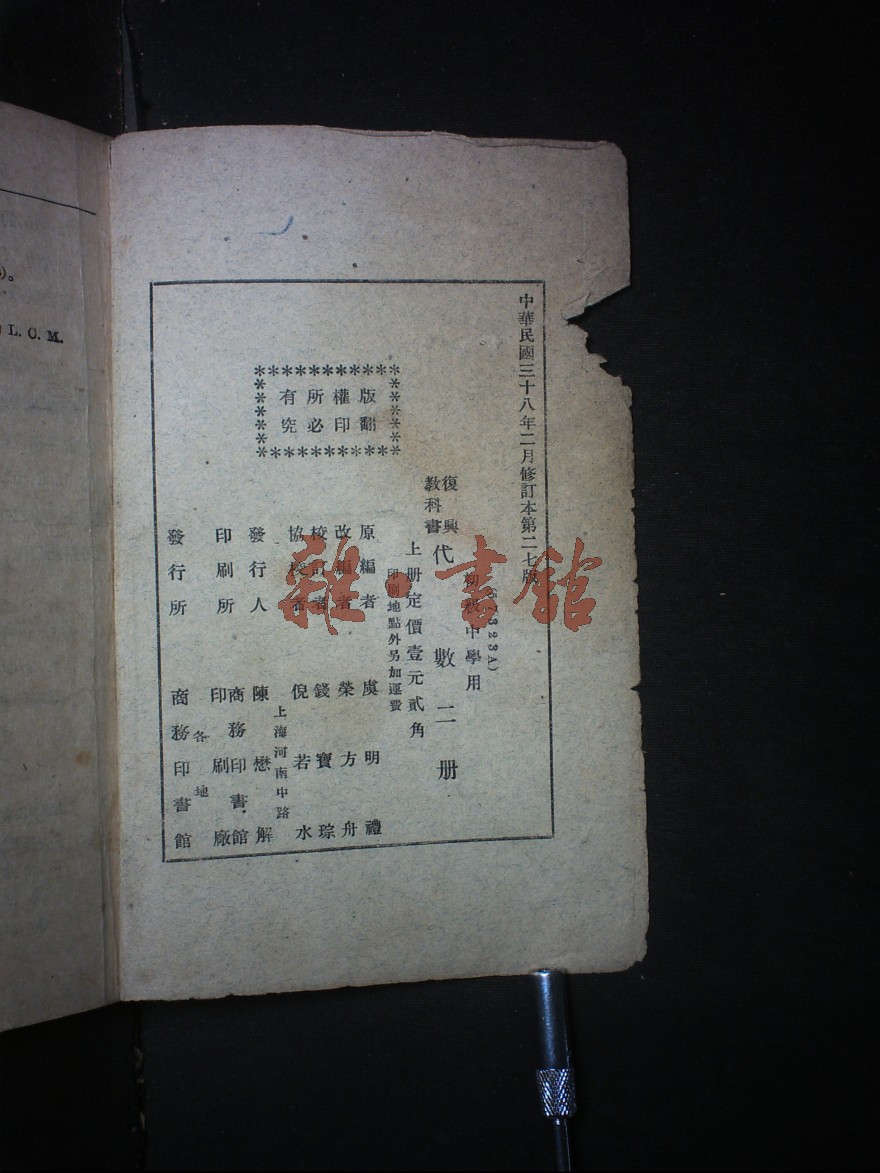 中華民國三十八年二月修訂本第二七版
(67323A)
初級中學用
復興
教科書
代數二册
上册定價壹元貳角
印刷地點外另加運費
版權所有
翻印必究
原編者 虞明禮
改編者 榮方舟
校訂者 錢寶琮
協校者 倪若水
上海河南中路
發行人 陳懋解
印刷所 商務印書館
印刷廠
發行所 各地
商務印書館
L. C. M.
雜·書館